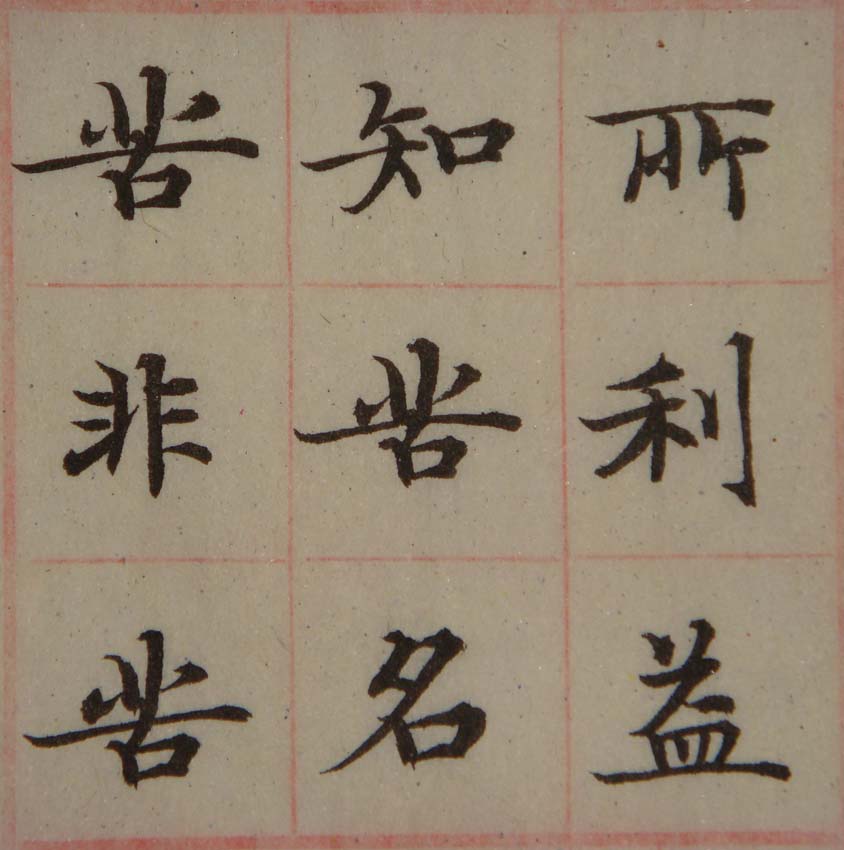 所利益
知苦名
苦非苦